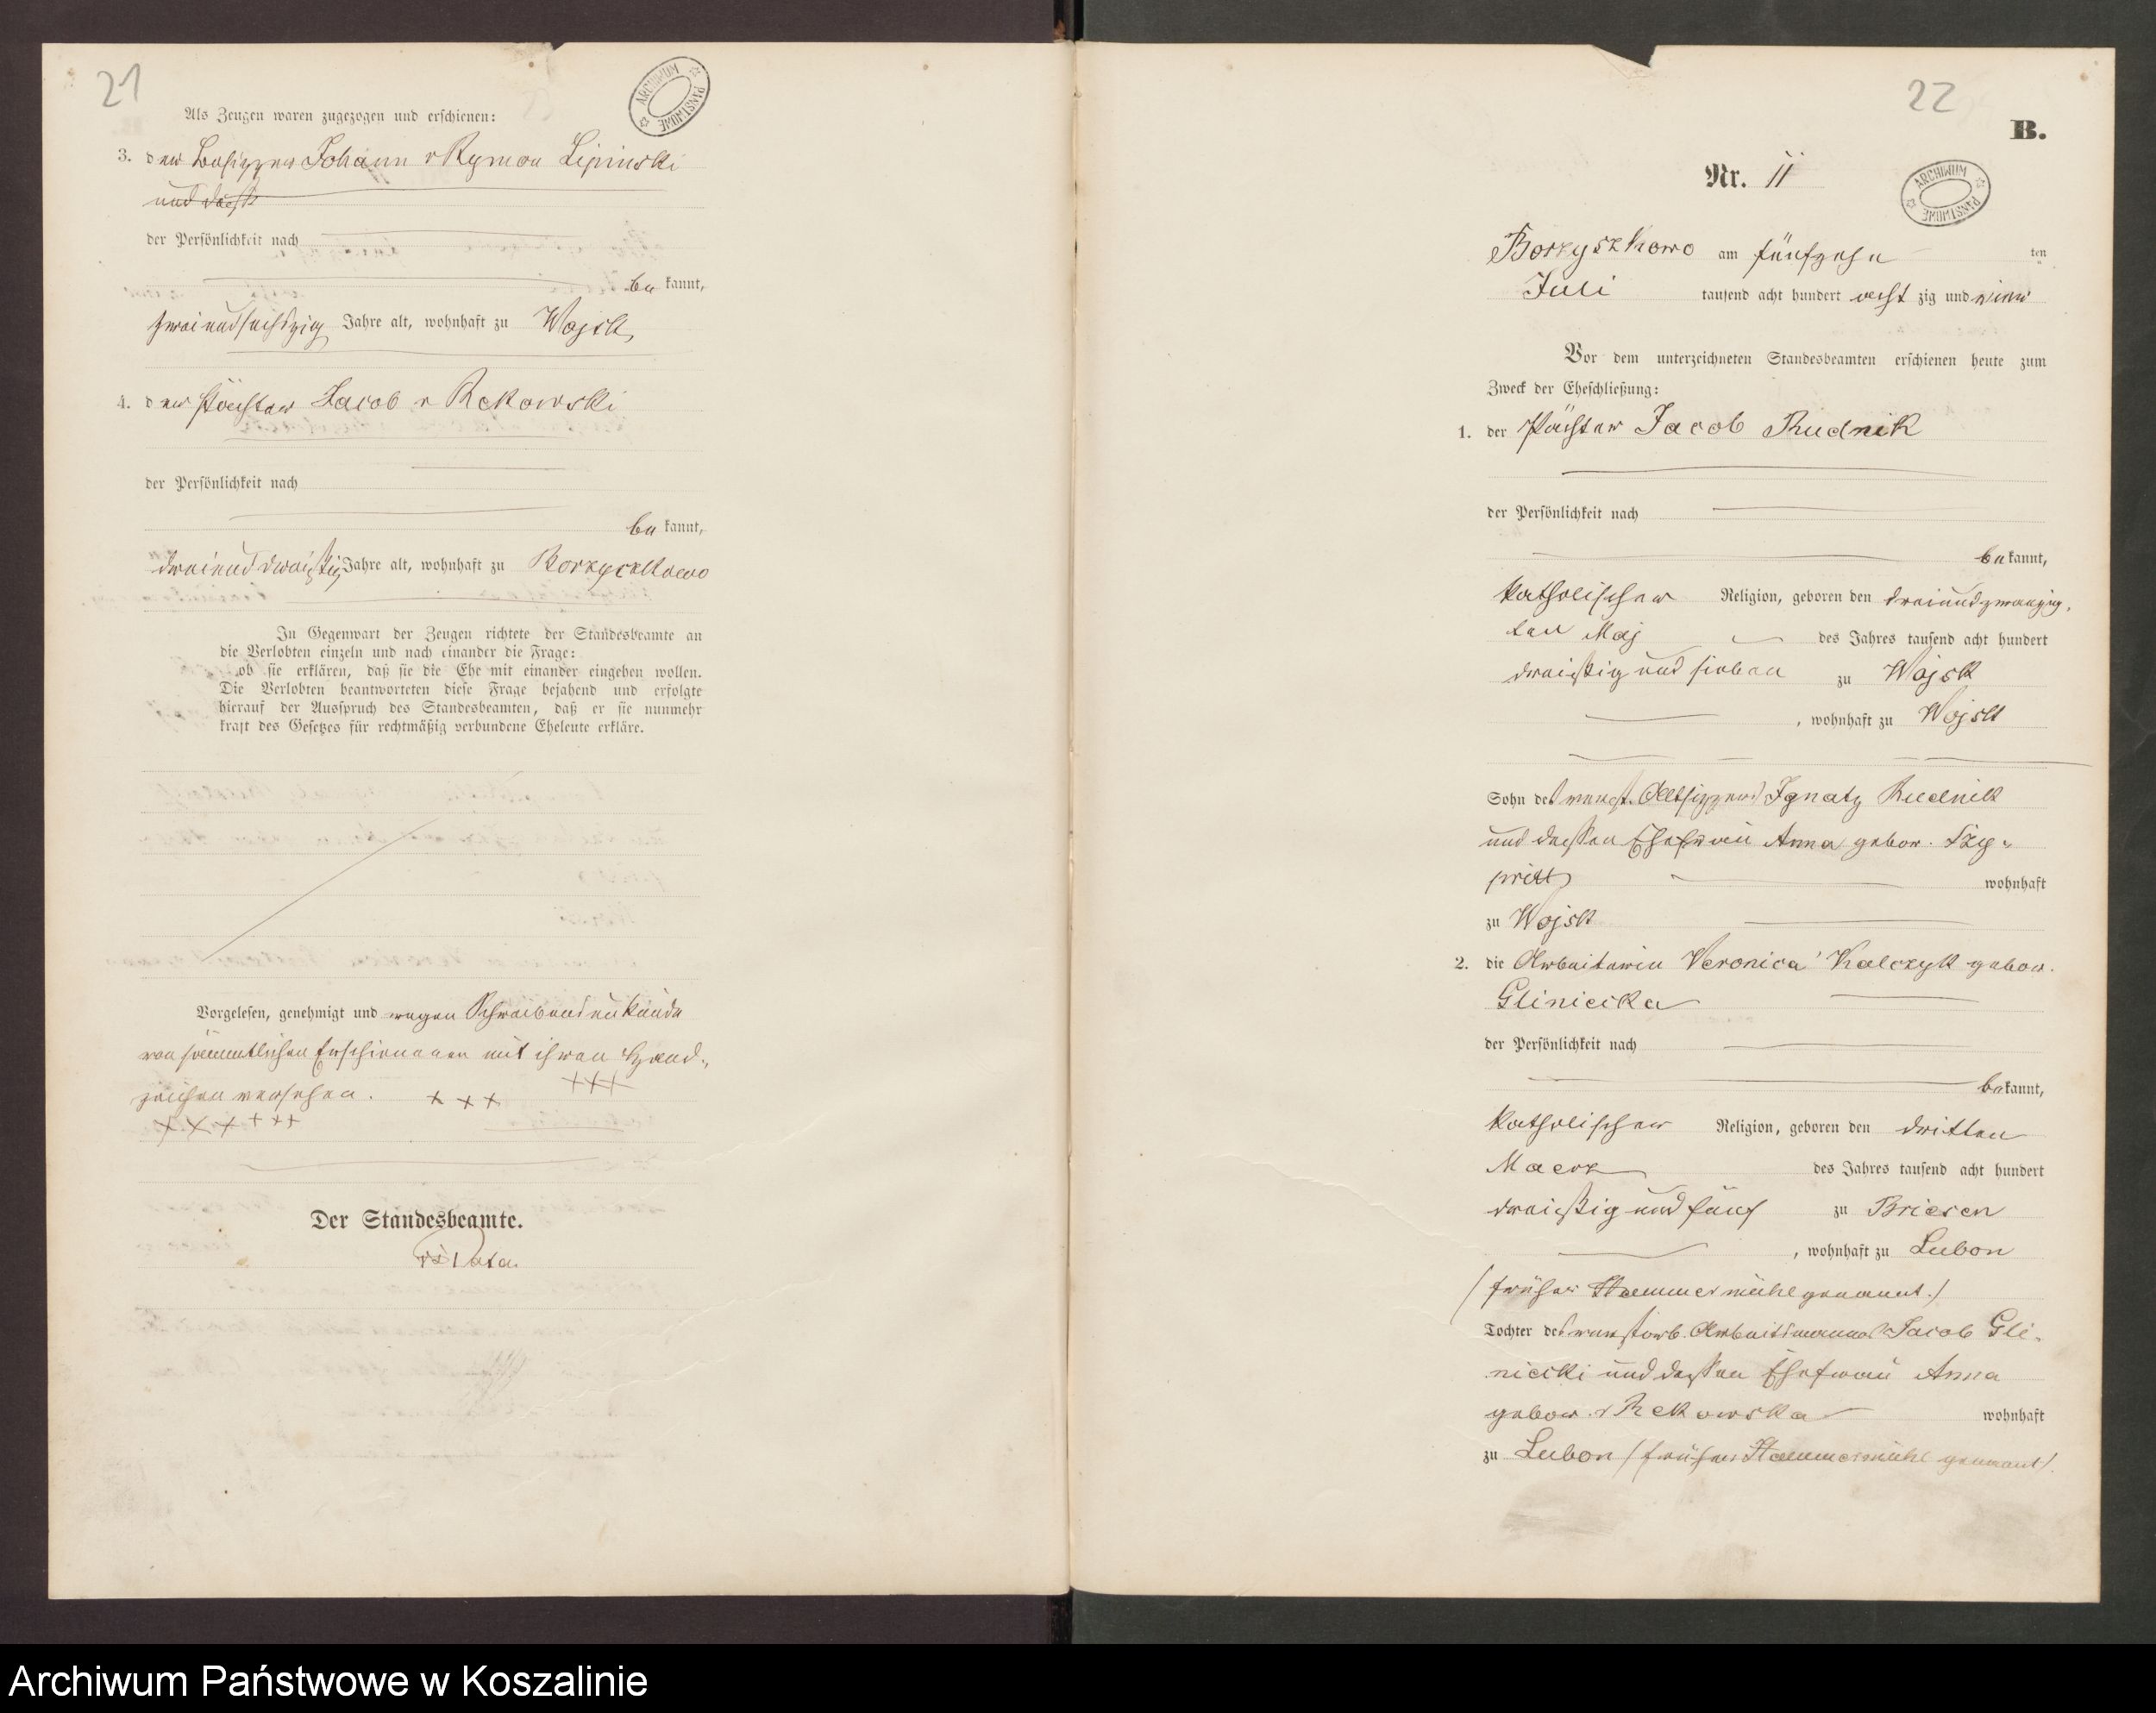 21
ARCHIWUM PAŃSTWOWE
Als Zeugen waren zugezogen und erschienen:
3. der Besitzer Johann v Rymon Lipinski
und dess
der Persönlichkeit nach
be kannt,
zweiundsechszig Jahre alt, wohnhaft zu Wojsk
4. der Pächter Jacob v Rekowski
der Persönlichkeit nach
be kannt,
dreiund dreißig Jahre alt, wohnhaft zu Borzyszkowo
In Gegenwart der Zeugen richtete der Standesbeamte an
die Verlobten einzeln und nach einander die Frage:
ob sie erklären, daß sie die Ehe mit einander eingehen wollen.
Die Verlobten beantworteten diese Frage bejahend und erfolgte
hierauf der Ausspruch des Standesbeamten, daß er sie nunmehr
kraft des Gesetzes für rechtmäßig verbundene Eheleute erkläre.
Vorgelesen, genehmigt und wegen Schreibensunkunde
von sämmtlichen Erschienenen mit ihren Hand-
zeichen versehen. + + + +++
+ + + + ++
Der Standesbeamte.
22
B.
Nr. 11
ARCHIWUM PAŃSTWOWE
Borzyszkowo am fünfzehn ten
Juli tausend acht hundert acht zig und neun
Vor dem unterzeichneten Standesbeamten erschienen heute zum
Zweck der Eheschließung:
1. der Pächter Jacob Rudnik
der Persönlichkeit nach
be kannt,
katholischer Religion, geboren den dreiundzwanzig-
ten Maj des Jahres tausend acht hundert
dreißig und sieben zu Wojsk
, wohnhaft zu Wojsk
Sohn des verst. Altsitzers Ignatz Rudnik
und dessen Ehefrau Anna gebor. Szy-
pritt wohnhaft
zu Wojsk
2. die Arbeiterin Veronica Kalczyk gebor.
Gliniecka
der Persönlichkeit nach
be kannt,
katholischer Religion, geboren den dritten
Maerz des Jahres tausend acht hundert
dreißig und fünf zu Briesen
, wohnhaft zu Lubon
(früher Hammermühl genannt.)
Tochter des verstorb. Arbeitsmannes Jacob Gli-
niecki und dessen Ehefrau Anna
gebor. v Rekowska wohnhaft
zu Lubon (früher Hammermühl genannt).
Archiwum Państwowe w Koszalinie